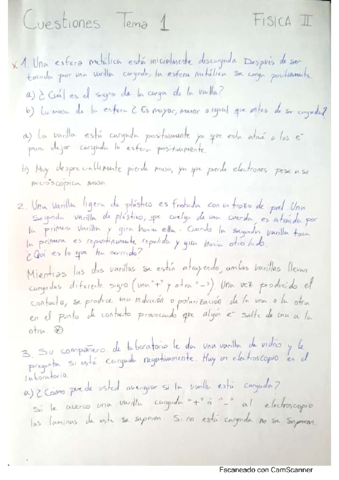 Cuestiones Tema 1 FISICA II
1. Una esfera metálica está inicialmente descargada. Después de ser
tocada por una varilla cargada, la esfera metálica se carga positivamente.
a) ¿Cuál es el signo de la carga de la varilla?
b) La masa de la esfera ¿Es mayor, menor o igual que antes de ser cargada?
a) La varilla está cargada positivamente ya que esta atrae a los e⁻
para dejar cargada la esfera positivamente.
b) Muy despreciablemente pierde masa, ya que pierde electrones pese a su
microscópica masa
2. Una varilla ligera de plástico es frotada con un trozo de piel. Una
segunda varilla de plástico, que cuelga de una cuerda, es atraída por
la primera varilla y gira hacia ella. Cuando la segunda varilla toca
la primera es repentinamente repelida y gira hacia otro lado.
¿Qué es lo que ha ocurrido?
Mientras las dos varillas se están atrayendo, ambas varillas llevan
cargados diferente signo (una "+" y otra "-") Una vez producido el
contacto, se produce una inducción o polarización de la una a la otra
en el punto de contacto provocando que algún e⁻ salte de una a la
otra
3. Su compañero de laboratorio le da una varilla de vidrio y le
pregunta si está cargada negativamente. Hay un electroscopio en el
laboratorio
a) ¿Cómo puede usted averiguar si la varilla está cargada?
Si le acerco una varilla cargada "+" ó "-" al electroscopio
las láminas de este se separan. Si no está cargada no se separan.
Escaneado con CamScanner